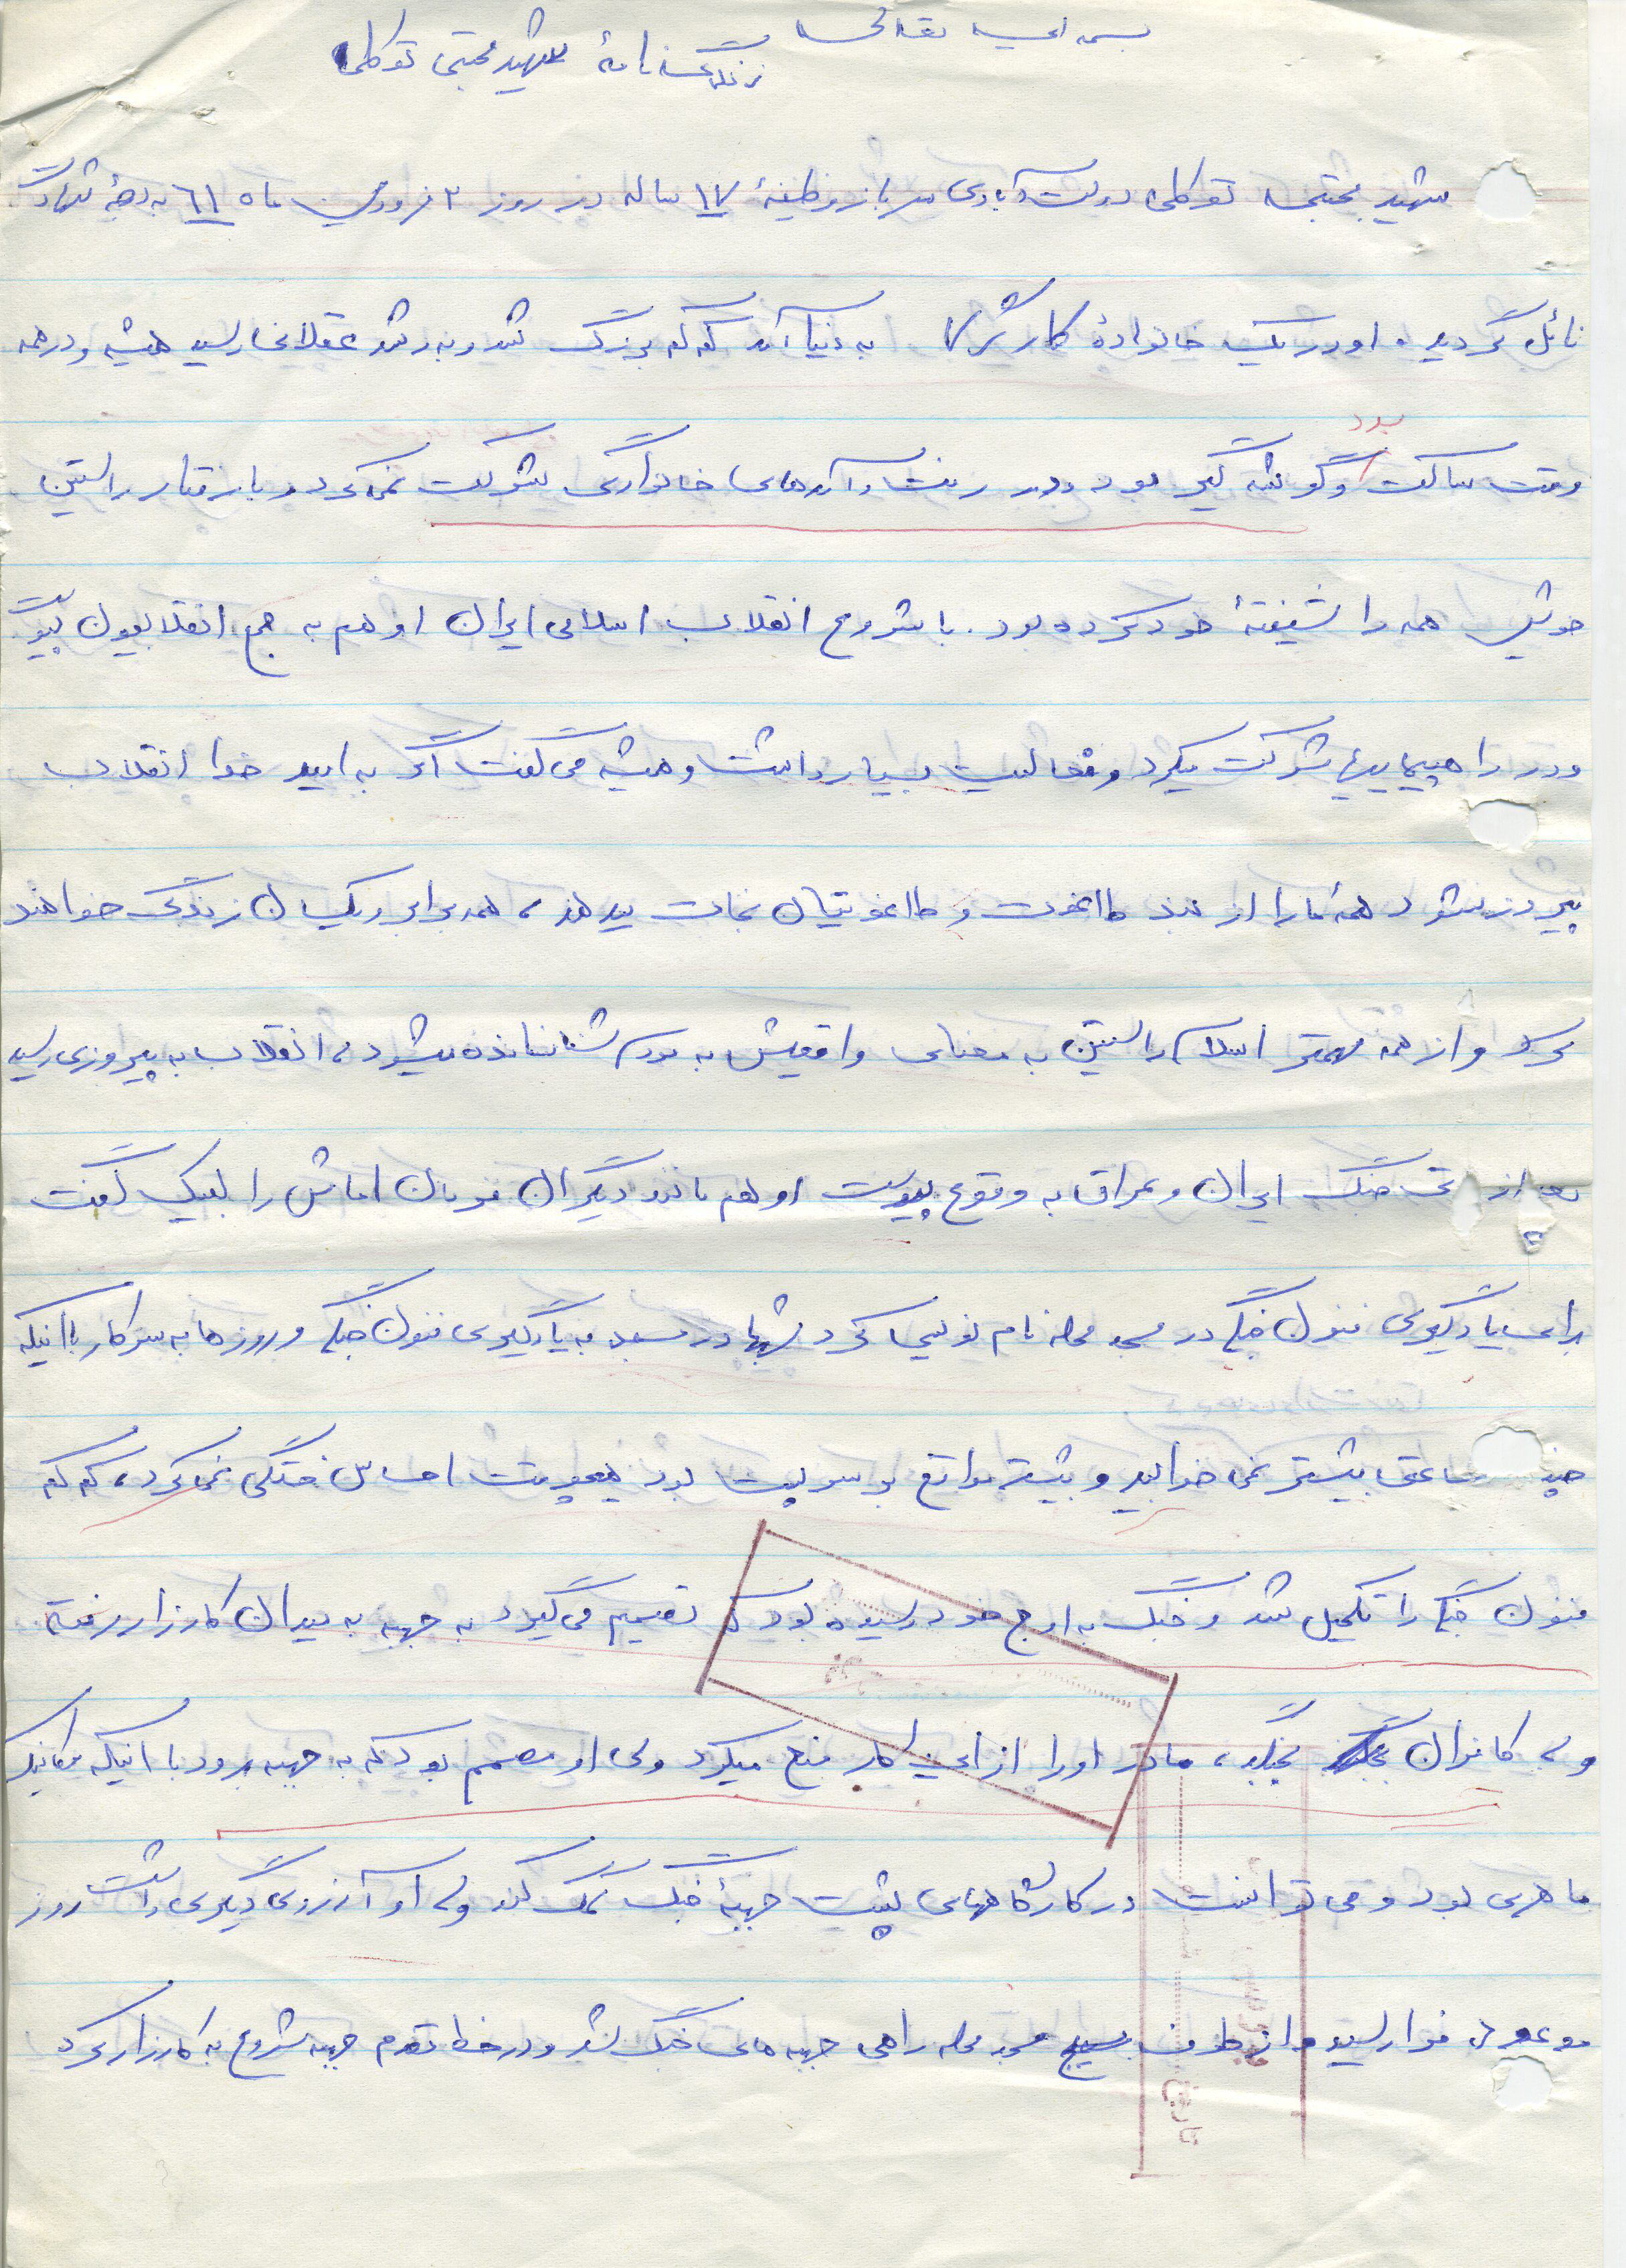 بسمه تعالی
زندگینامهٔ شهید مجتبی توکلی
شهید مجتبی توکلی دولت آبادی سرباز وظیفهٔ ۱۷ ساله در روز ۲ فروردین ماه ٦١ به درجهٔ شهادت
نائل گردید. او در یک خانوادهٔ کارگر به دنیا آمد کم کم بزرگ شد و به رشد عقلانی رسید همیشه و در همه
بود
وقت ساکت و گوشه گیر بود و در رفت و آمدهای خانوادگی شرکت نمی کرد و با رفتار راستین
خویش همه را شیفتهٔ خود کرده بود. با شروع انقلاب اسلامی ایران او هم به جمع انقلابیون پیوست
و در راهپیمایی‌ها شرکت میکرد و فعالیت بسیار داشت و همیشه می گفت اگر به امید خدا انقلاب
پیروز شود همهٔ ما را از بند طاغوت و طاغوتیان نجات میدهند، همه برابر و یکسان زندگی خواهند
کرد و از همه مهمتر اسلام راستین به معنای واقعیش به مردم شناسانده میشود، انقلاب به پیروزی رسید
بعد از جنگ ایران و عراق به وقوع پیوست او هم مانند دیگران فرمان امامش را لبیک گفت
برای یادگیری فنون جنگی در مسجد محله نام نویسی کرد شبها در مسجد به یادگیری فنون جنگی و روزها به سر کار با اینکه
چند ساعتی بیشتر نمی خوابید و بیشتر مواقع بر سر پست بود هیچوقت احساس خستگی نمی کرد، کم کم
فنون جنگی را تکمیل شد و جنگ به اوج خود رسیده بود که تصمیم می گیرد به جبهه به میدان کارزار رفته
و با کافران بجنگد، مادر او را از این کار منع میکرد ولی او مصمم بود که به جبهه برود با اینکه مکانیک
ماهری بود و می توانست در کارگاههای پشت جبههٔ جنگ کمک کند ولی او آرزوی دیگری داشت روز
موعود فرا رسید و از طرف بسیج مسجد محله راهی جبهه های جنگ شد و در خط مقدم جبهه شروع به کارزار کرد
تاریخ